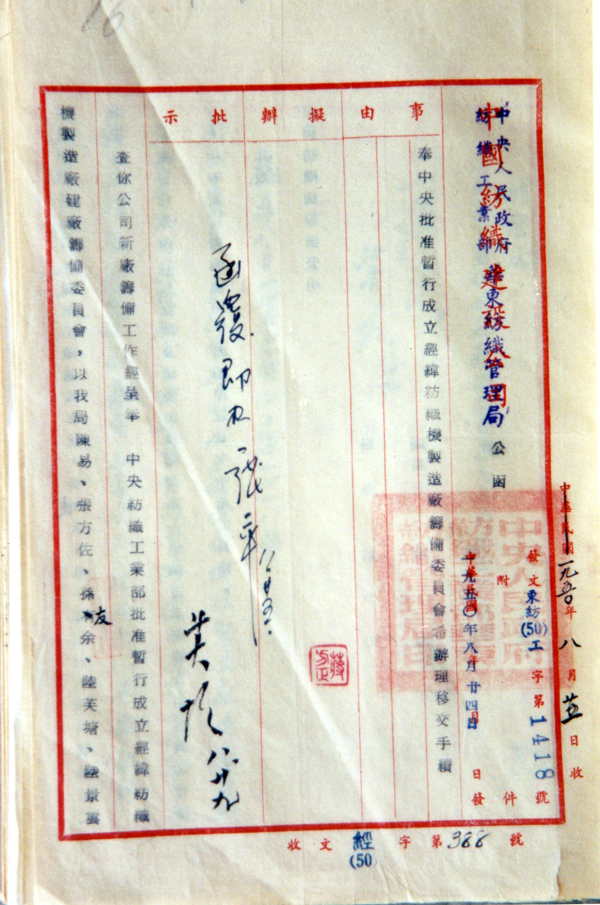 中華民國一九五〇年八月廿五日收
發文東紡(50)工字第1418號
附件
中國紡織建設公司
中央人民政府
紡織工業部
華東紡織管理局
公函
一九五〇年八月廿四日
日發
事由
擬辦
批示
奉中央批准暫行成立經緯紡織機製造廠籌備委員會希辦理移交手續
函覆
八廿九
查你公司新廠籌備工作經呈奉 中央紡織工業部批准暫行成立經緯紡織
機製造廠建廠籌備委員會,以我局陳易、張方佐、孫友余、陸芙塘、陸景雲
收文經(50字第388號